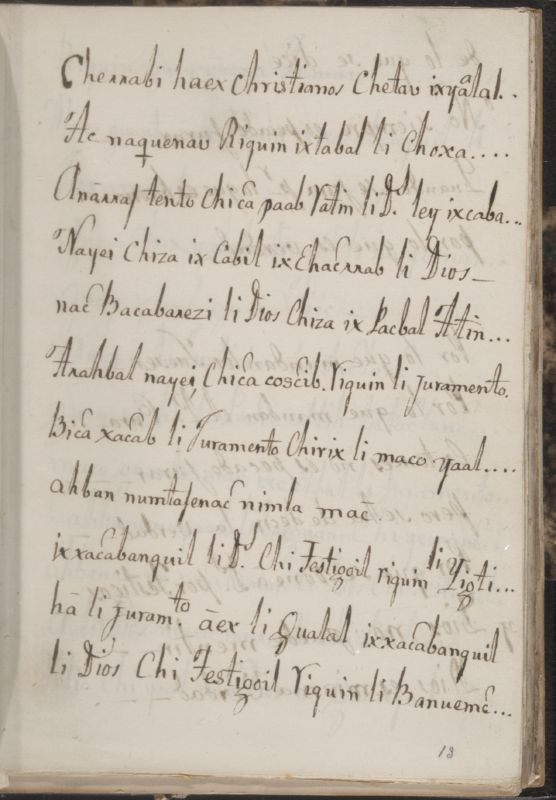 Chennabi haex christianos chetav ixyâlal..
Ac naquenav Riquin ixtabal li choxa....
Anānnaſ tento chic̄a paab Yatin li D.s ley ixcaba...
Nayei Chiza ix Cabil ix Ehac̄nnab li Dios_
nac̄ Bacabanezi li Dios Chiza ix Pacbal Atin̄...
Anahbal nayei, Chic̄a cosc̄ib. Viquin li juramento.
Bic̄a xac̄ab li Juramento Chirix li maco yaal....
ahbān num̄taſenac̄ nimla mac̄
ixxāc̄abanquil li D.s Chi Testigoil riquin li Yigti...
hā li juram.to āex li Qualal ixxac̄abanquil
li Dios Chi Testigoil Viquin li Banuemc̄...
13